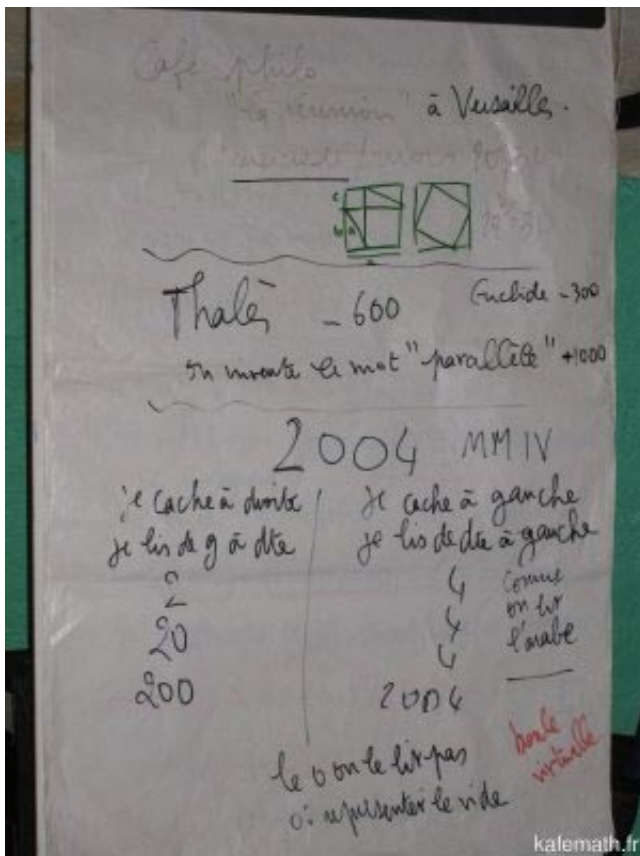 Café philo
"la réunion" à Versailles.
c
b a
Thalès - 600
Euclide - 300
on invente le mot "parallèle" +1000
2004 MMIV
je cache à droite
je lis de g à dte
2
20
200
je cache à gauche
je lis de dte à gauche
4
4
4
2004
comme
on lit
l'arabe
boule
virtuelle
le 0 on le lit pas
0: représenter le vide
kafemath.fr